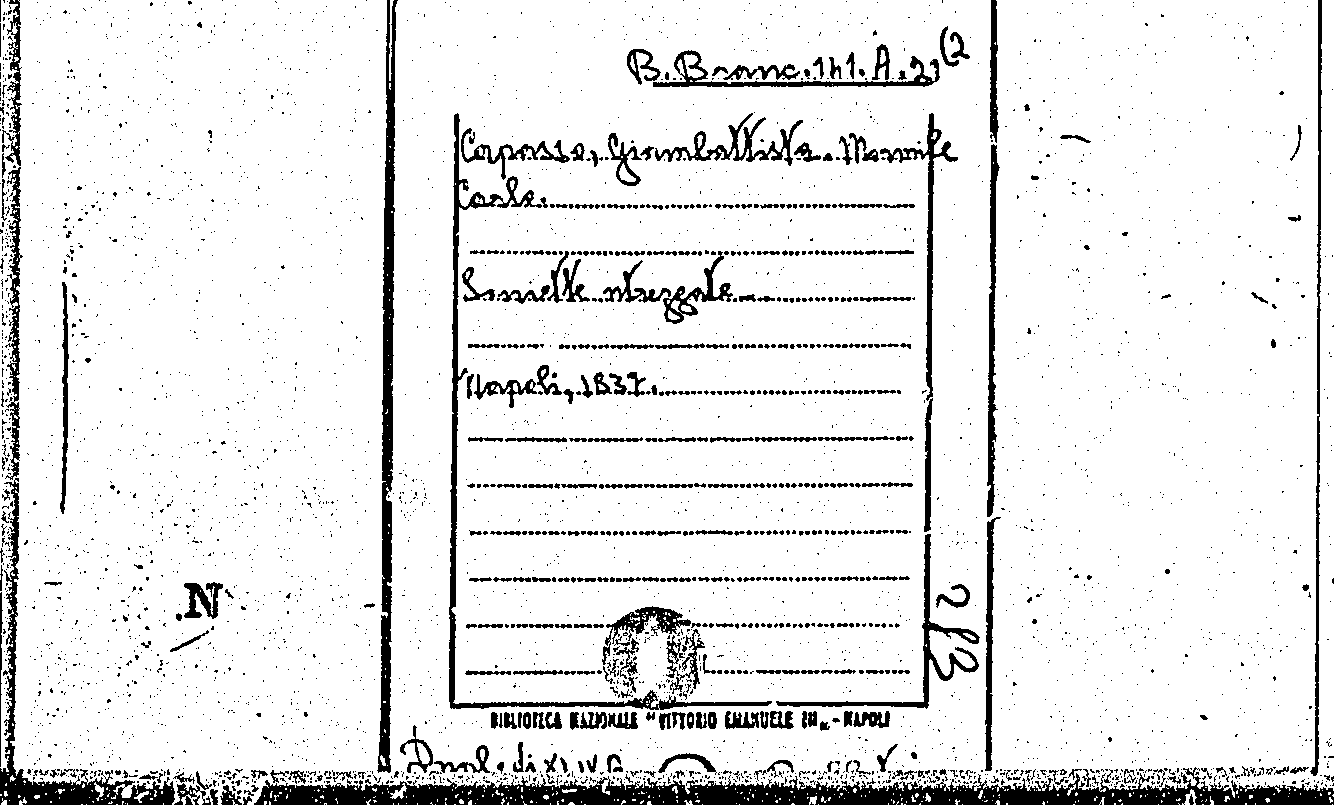 B. Branc. 141. A. 23 (2
Capasso, Giambattista. Mormile
Carlo.
Soniette ntrezzate
Napoli, 1837.
.N
BIBLIOTECA NAZIONALE " VITTORIO EMANUELE III" - NAPOLI